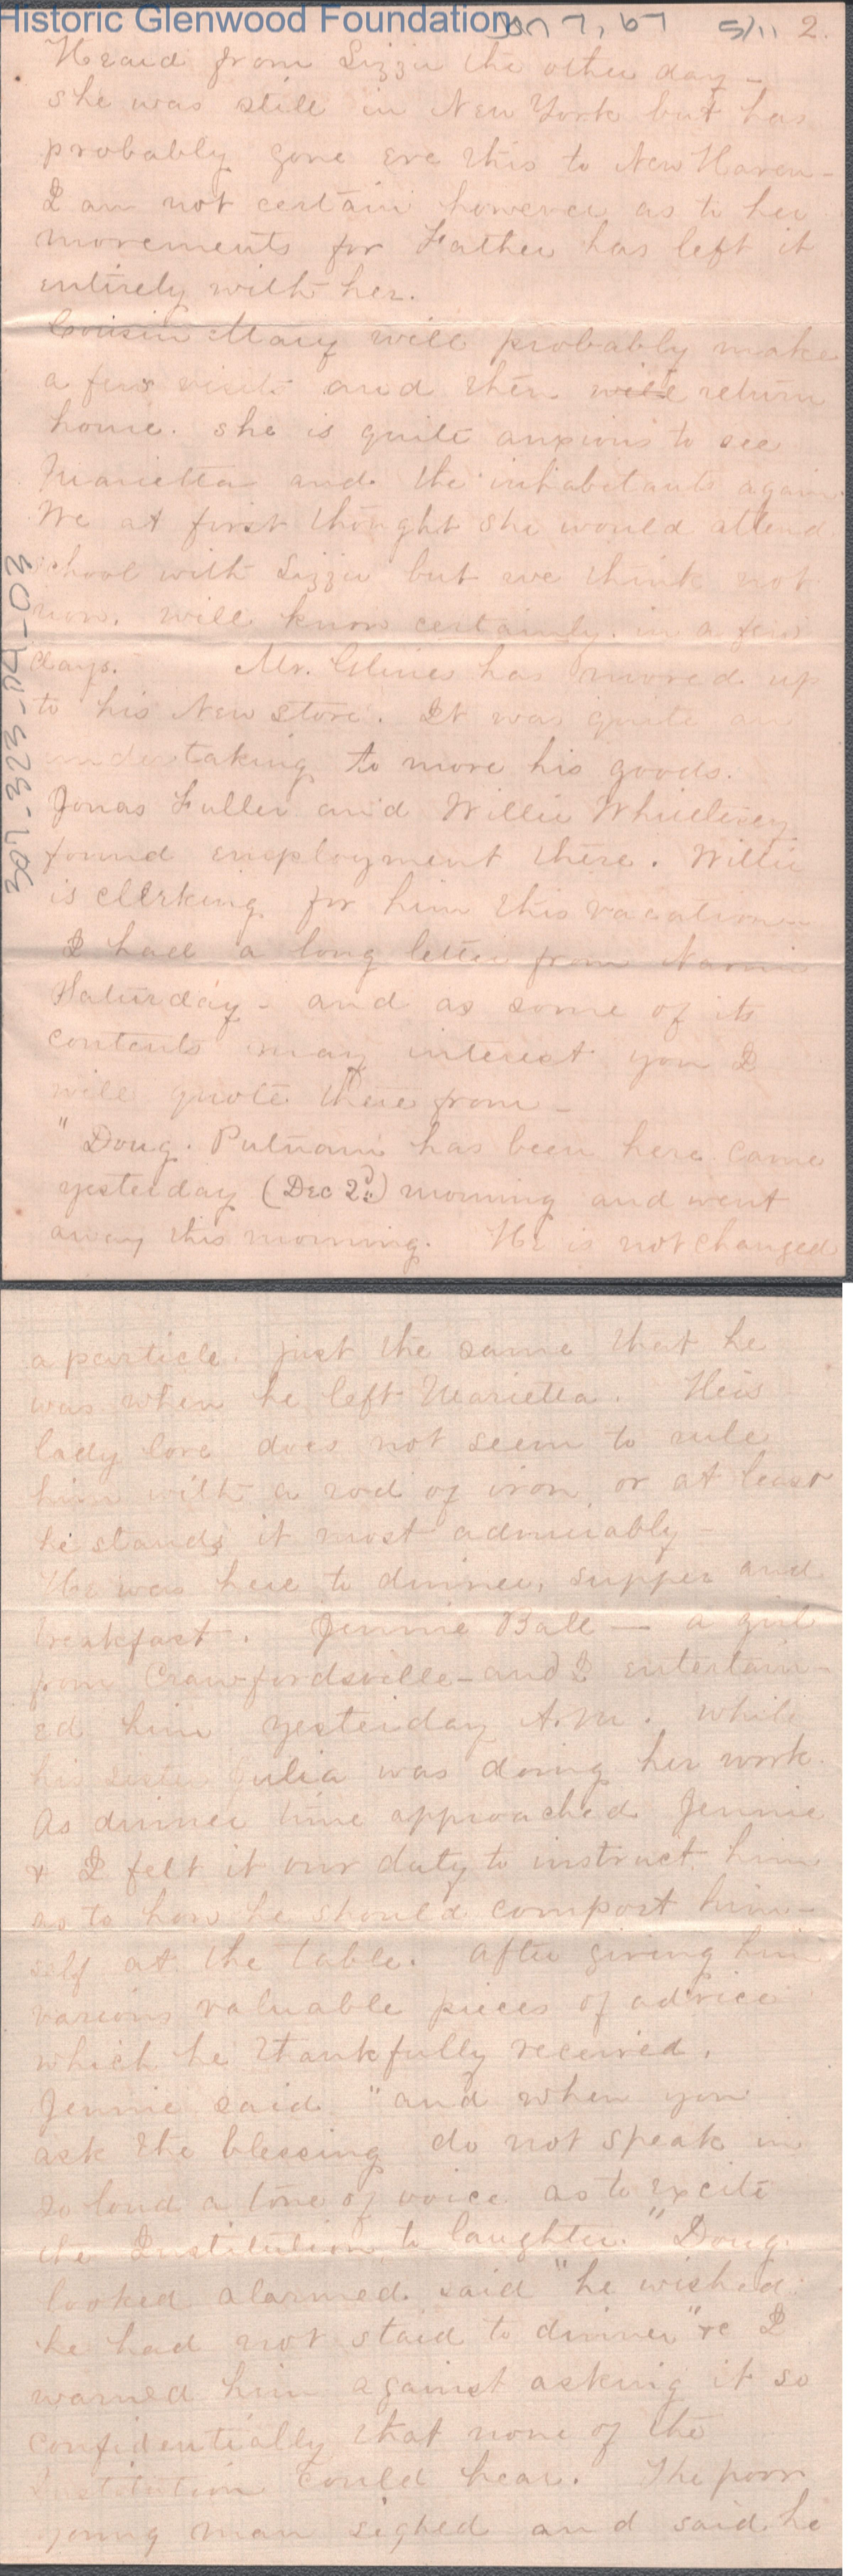 Historic Glenwood Foundation
Jan 7, 67 5/11 2.
Heard from Lizzie the other day -
she was still in New York but has
probably gone ere this to New Haven -
I am not certain however as to her
movements for Father has left it
entirely with her.
Cousin Mary will probably make
a few visits and then will return
home. she is quite anxious to see
Marietta and the inhabitants again.
We at first thought she would attend
school with Lizzie but we think not
now. will know certainly in a few
days. Mr. Glines has moved up
to his New Store. It was quite an
undertaking to move his goods.
Jonas Fuller and Willie Whittlesey
found employment there. Willie
is clerking for him this vacation
I had a long letter from Nannie
Saturday - and as some of its
contents may interest you I
will quote therefrom -
"Doug. Putnam has been here came
yesterday (Dec 2d) morning and went
away this morning. He is not changed
307-323-04-03
a particle. just the same that he
was when he left Marietta. His
lady love does not seem to rule
him with a rod of iron, or at least
he stands it most admirably -
He was here to dinner, supper and
breakfast. Jennie Ball — a girl
from Crawfordsville - and I entertain-
ed him yesterday A.M. while
his sister Julia was doing her work.
As dinner time approached Jennie
& I felt it our duty to instruct him
as to how he should comport him-
self at the table. After giving him
various valuable pieces of advice
which he thankfully received.
Jennie said "and when you
ask the blessing do not speak in
so loud a tone of voice as to excite
the Institution to laughter." Doug.
looked alarmed. said "he wished
he had not staid to dinner" & I
warned him against asking it so
confidentially that none of the
Institution could hear. The poor
young man sighed and said he